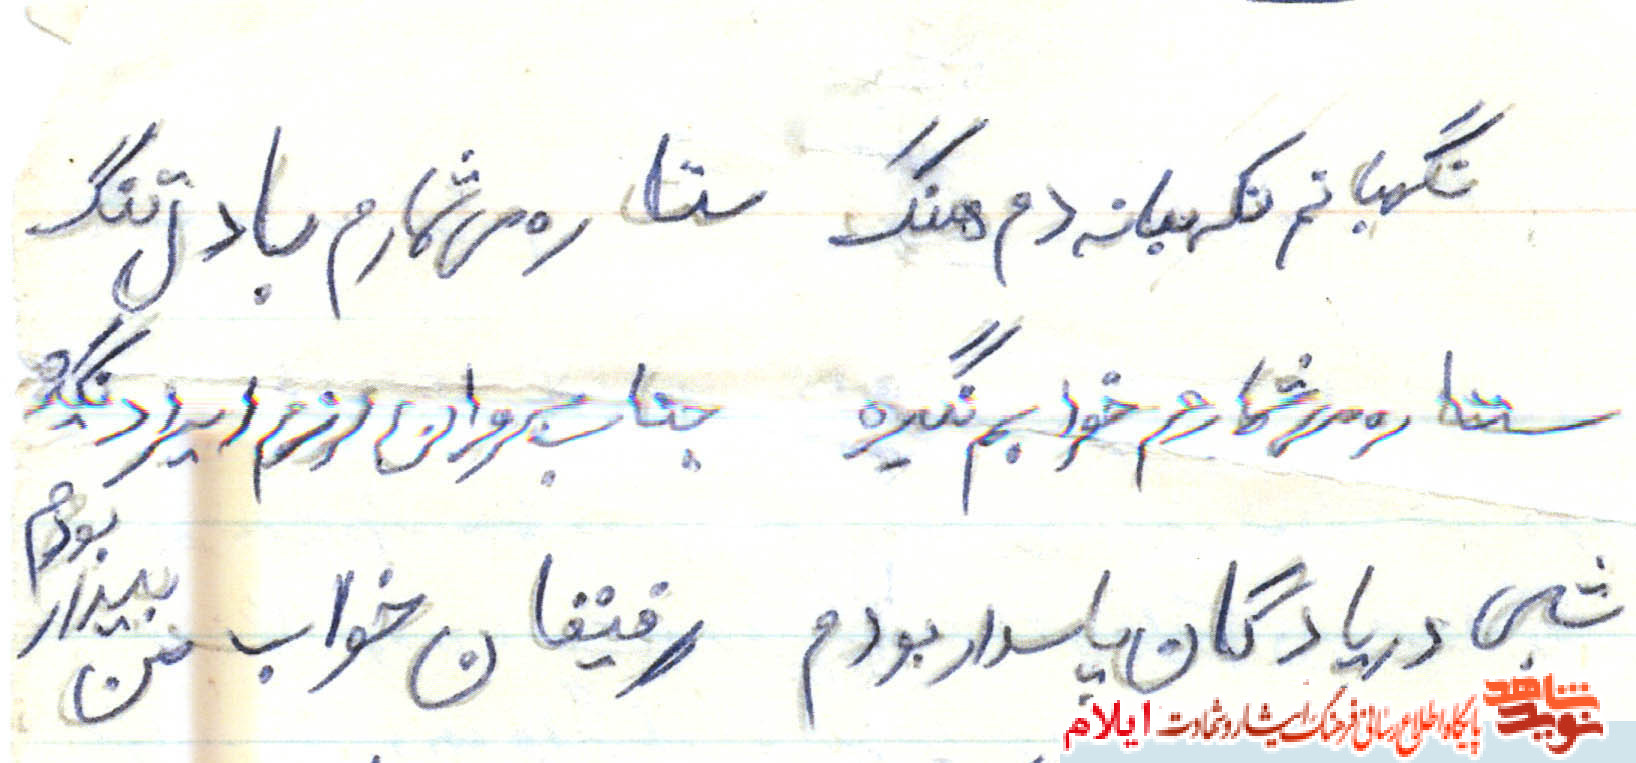 نگهبانم نگهبانه دم هنگ ستاره میشمارم با دل تنگ
ستاره میشمارم خوابم نگیره جناب سروان ازم ایراد نگیره
شبی در پادگان پاسدار بودم رفیقان خواب من بیدار بودم
نوید شاهد
پایگاه اطلاع رسانی فرهنگ ایثار و شهادت ایلام